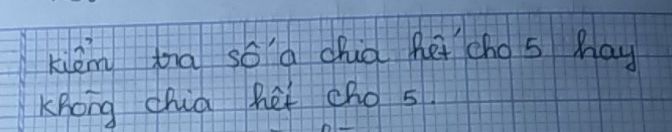 kiểm tra số a chia hết cho 5 hay
không chia hết cho 5.